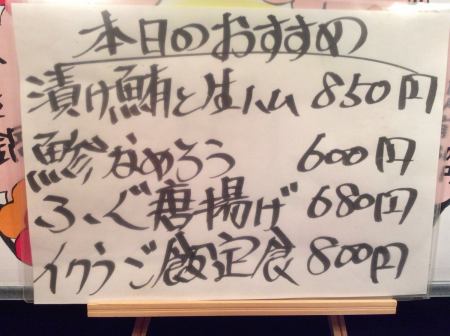 本日のおすすめ
漬け鮪と生ハム 850円
鯵なめろう 600円
ふぐ唐揚げ 680円
イクラご飯定食 800円